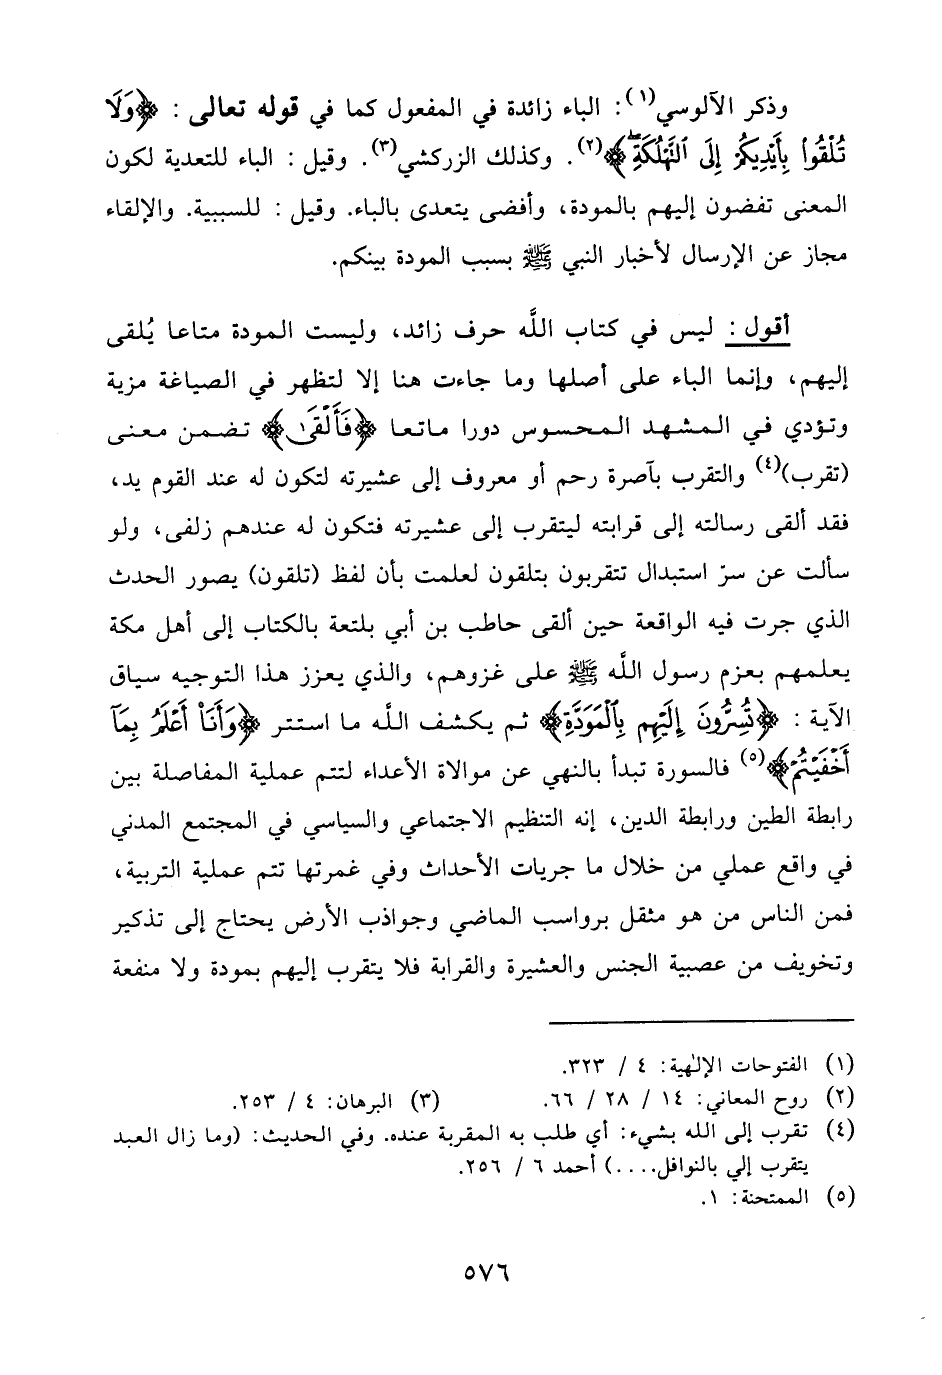 وذكر الآلوسي(١): الباء زائدة في المفعول كما في قوله تعالى : ﴿وَلَا
تُلْقُوا۟ بِأَيْدِيكُمْ إِلَى ٱلتَّهْلُكَةِ﴾(٢). وكذلك الزركشي(٣). وقيل : الباء للتعدية لكون
المعنى تفضون إليهم بالمودة، وأفضى يتعدى بالباء. وقيل : للسببية. والإلقاء
مجاز عن الإرسال لأخبار النبي ﷺ بسبب المودة بينكم.
أقول : ليس في كتاب اللَّه حرف زائد، وليست المودة متاعا يُلقى
إليهم، وإنما الباء على أصلها وما جاءت هنا إلا لتظهر في الصياغة مزية
وتؤدي في المشهد المحسوس دورا ماتعا ﴿فَأَلْقَىٰ﴾ تضمن معنى
(تقرب)(٤) والتقرب بآصرة رحم أو معروف إلى عشيرته لتكون له عند القوم يد،
فقد ألقى رسالته إلى قرابته ليتقرب إلى عشيرته فتكون له عندهم زلفى، ولو
سألت عن سرّ استبدال تتقربون بتلقون لعلمت بأن لفظ (تلقون) يصور الحدث
الذي جرت فيه الواقعة حين ألقى حاطب بن أبي بلتعة بالكتاب إلى أهل مكة
يعلمهم بعزم رسول اللَّه ﷺ على غزوهم، والذي يعزز هذا التوجيه سياق
الآية : ﴿تُسِرُّونَ إِلَيْهِم بِٱلْمَوَدَّةِ﴾ ثم يكشف اللَّه ما استتر ﴿وَأَنَا۠ أَعْلَمُ بِمَآ
أَخْفَيْتُمْ﴾(٥) فالسورة تبدأ بالنهي عن موالاة الأعداء لتتم عملية المفاصلة بين
رابطة الطين ورابطة الدين، إنه التنظيم الاجتماعي والسياسي في المجتمع المدني
في واقع عملي من خلال ما جريات الأحداث وفي غمرتها تتم عملية التربية،
فمن الناس من هو مثقل برواسب الماضي وجواذب الأرض يحتاج إلى تذكير
وتخويف من عصبية الجنس والعشيرة والقرابة فلا يتقرب إليهم بمودة ولا منفعة
(١) الفتوحات الإلٰهية: ٤ / ٣٢٣.
(٢) روح المعاني: ١٤ / ٢٨ / ٦٦. (٣) البرهان: ٤ / ٢٥٣.
(٤) تقرب إلى الله بشيء: أي طلب به المقربة عنده. وفي الحديث: (وما زال العبد
يتقرب إلي بالنوافل....) أحمد ٦ / ٢٥٦.
(٥) الممتحنة: ١.
٥٧٦